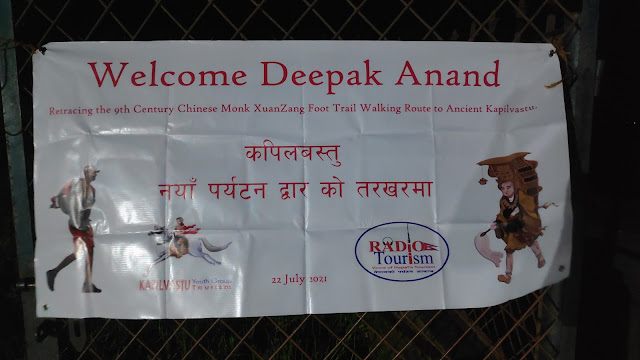 Welcome Deepak Anand
Retracing the 9th Century Chinese Monk XuanZang Foot Trail Walking Route to Ancient Kapilvastu.
कपिलबस्तु
नयाँ पर्यटन द्वार को तरखरमा
RADIO
Tourism
KAPILVASTU
Tourism
22 July 2021